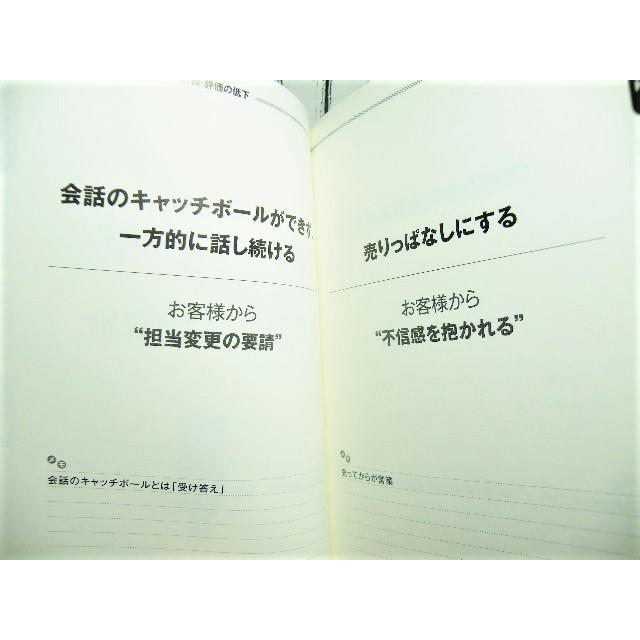 評価の低下
会話のキャッチボールができず、
一方的に話し続ける
お客様から
“担当変更の要請”
メモ
会話のキャッチボールとは「受け答え」
売りっぱなしにする
お客様から
“不信感を抱かれる”
メモ
売ってからが営業